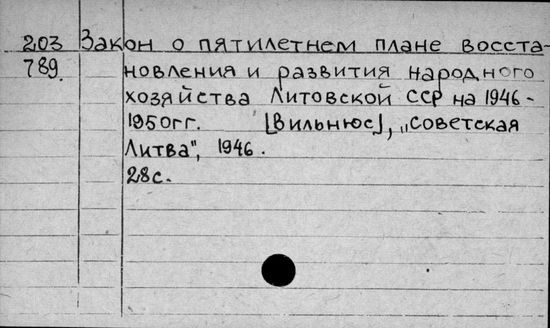 203 Закон о пятилетнем плане восста-
789. новления и развития народного
хозяйства Литовской ССР на 1946-
1950гг. [Вильнюс], „Советская
Литва", 1946.
28с.